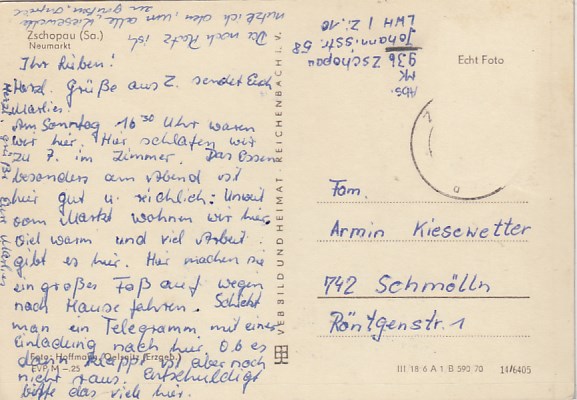 Da noch Platz ist,
nutze ich den, um alle Kiesewetter
zu grüßen,
Zschopau (Sa.)
Neumarkt
Ihr Lieben!
Herzl. Grüße aus Z. sendet Euch
Marlies.
Am Sonntag 16³⁰ Uhr waren
wir hier. Hier schlafen wir
zu 7. im Zimmer. Das Essen
besonders am Abend ist
hier gut u. reichlich. Unweit
vom Markt wohnen wir hier.
Viel warm und viel Arbeit
gibt es hier. Hier machen sie
ein großes Faß auf wegen
nach Hause fahren. Schickt
man ein Telegramm mit einer
Einladung nach hier. Ob es
dann klappt ist aber noch
nicht raus. Entschuldigt
bitte das viele hier.
Foto: Hoffmann, Oelsnitz (Erzgeb.)
EVP M –.25
VEB BILD UND HEIMAT REICHENBACH I. V.
Abs.
MK
936 Zschopau
Johannisstr. 58
LWH I Zi. 10
Echt Foto
Fam.
Armin Kiesewetter
742 Schmölln
Röntgenstr. 1
III 18 6 A 1 B 590 70 14/6405